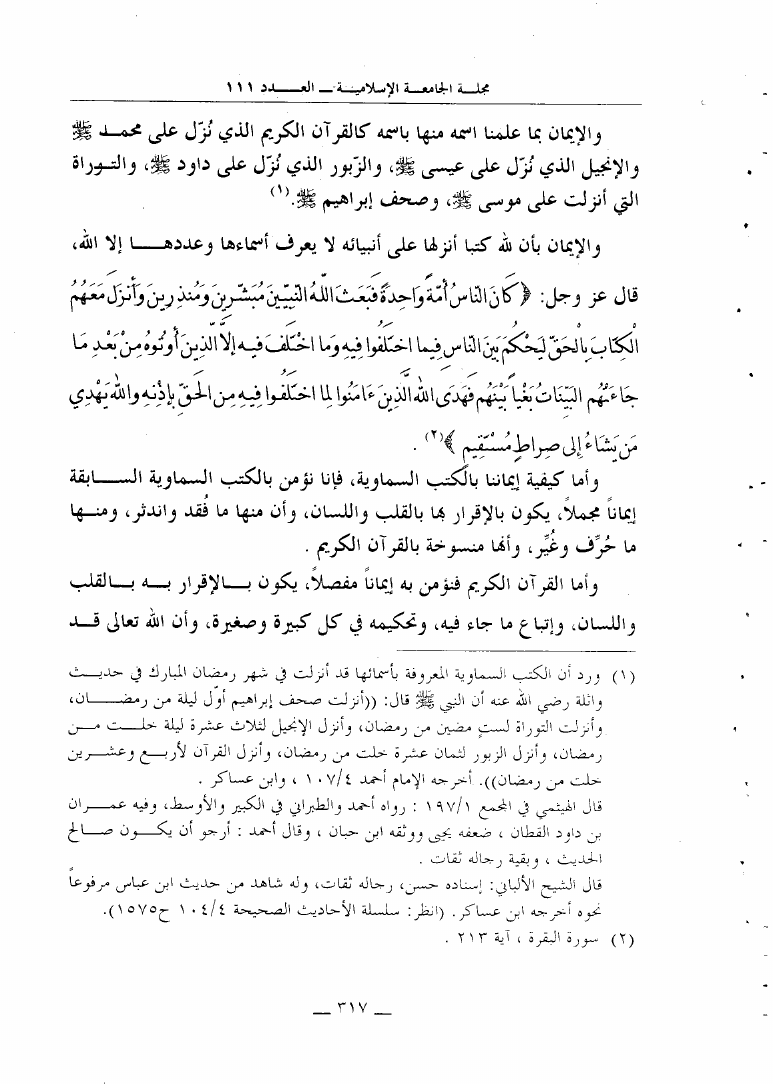 مجلة الجامعة الإسلامية – العدد ١١١
والإيمان بما علمنا اسمه منها باسمه كالقرآن الكريم الذي نُزّل على محمد ﷺ
والإنجيل الذي نُزّل على عيسى ﷺ، والزّبور الذي نُزّل على داود ﷺ، والتوراة
التي أنزلت على موسى ﷺ، وصحف إبراهيم ﷺ.(١)
والإيمان بأن لله كتبا أنزلها على أنبيائه لا يعرف أسماءها وعددها إلا الله،
قال عز وجل: ﴿كَانَ النَّاسُ أُمَّةً وَاحِدَةً فَبَعَثَ اللَّهُ النَّبِيِّينَ مُبَشِّرِينَ وَمُنذِرِينَ وَأَنزَلَ مَعَهُمُ
الْكِتَابَ بِالْحَقِّ لِيَحْكُمَ بَيْنَ النَّاسِ فِيمَا اخْتَلَفُوا فِيهِ وَمَا اخْتَلَفَ فِيهِ إِلاَّ الَّذِينَ أُوتُوهُ مِنْ بَعْدِ مَا
جَاءَتْهُمُ الْبَيِّنَاتُ بَغْياً بَيْنَهُمْ فَهَدَى اللَّهُ الَّذِينَ ءَامَنُوا لِمَا اخْتَلَفُوا فِيهِ مِنَ الْحَقِّ بِإِذْنِهِ وَاللَّهُ يَهْدِي
مَن يَشَاءُ إِلَى صِرَاطٍ مُسْتَقِيمٍ﴾(٢) .
وأما كيفية إيماننا بالكتب السماوية، فإنا نؤمن بالكتب السماوية السابقة
إيماناً مجملاً، يكون بالإقرار بها بالقلب واللسان، وأن منها ما فُقد واندثر، ومنها
ما حُرِّف وغُيِّر، وأنها منسوخة بالقرآن الكريم .
وأما القرآن الكريم فنؤمن به إيماناً مفصلاً، يكون بالإقرار به بالقلب
واللسان، وإتباع ما جاء فيه، وتحكيمه في كل كبيرة وصغيرة، وأن الله تعالى قد
(١) ورد أن الكتب السماوية المعروفة بأسمائها قد أنزلت في شهر رمضان المبارك في حديث
واثلة رضي الله عنه أن النبي ﷺ قال: ((أنزلت صحف إبراهيم أوّل ليلة من رمضان،
وأنزلت التوراة لست مضين من رمضان، وأنزل الإنجيل لثلاث عشرة ليلة خلت من
رمضان، وأنزل الزبور لثمان عشرة خلت من رمضان، وأنزل القرآن لأربع وعشرين
خلت من رمضان)). أخرجه الإمام أحمد ١٠٧/٤ ، وابن عساكر .
قال الهيثمي في المجمع ١٩٧/١ : رواه أحمد والطبراني في الكبير والأوسط، وفيه عمران
بن داود القطان ، ضعفه يحيى ووثقه ابن حبان ، وقال أحمد : أرجو أن يكون صالح
الحديث ، وبقية رجاله ثقات .
قال الشيخ الألباني: إسناده حسن، رجاله ثقات، وله شاهد من حديث ابن عباس مرفوعاً
نحوه أخرجه ابن عساكر. (انظر: سلسلة الأحاديث الصحيحة ١٠٤/٤ ح١٥٧٥).
(٢) سورة البقرة ، آية ٢١٣ .
— ٣١٧ —